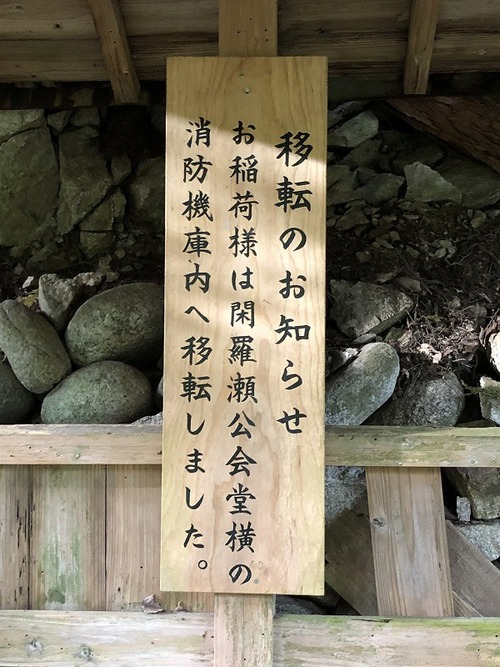 移転のお知らせ
お稲荷様は閑羅瀬公会堂横の
消防機庫内へ移転しました。